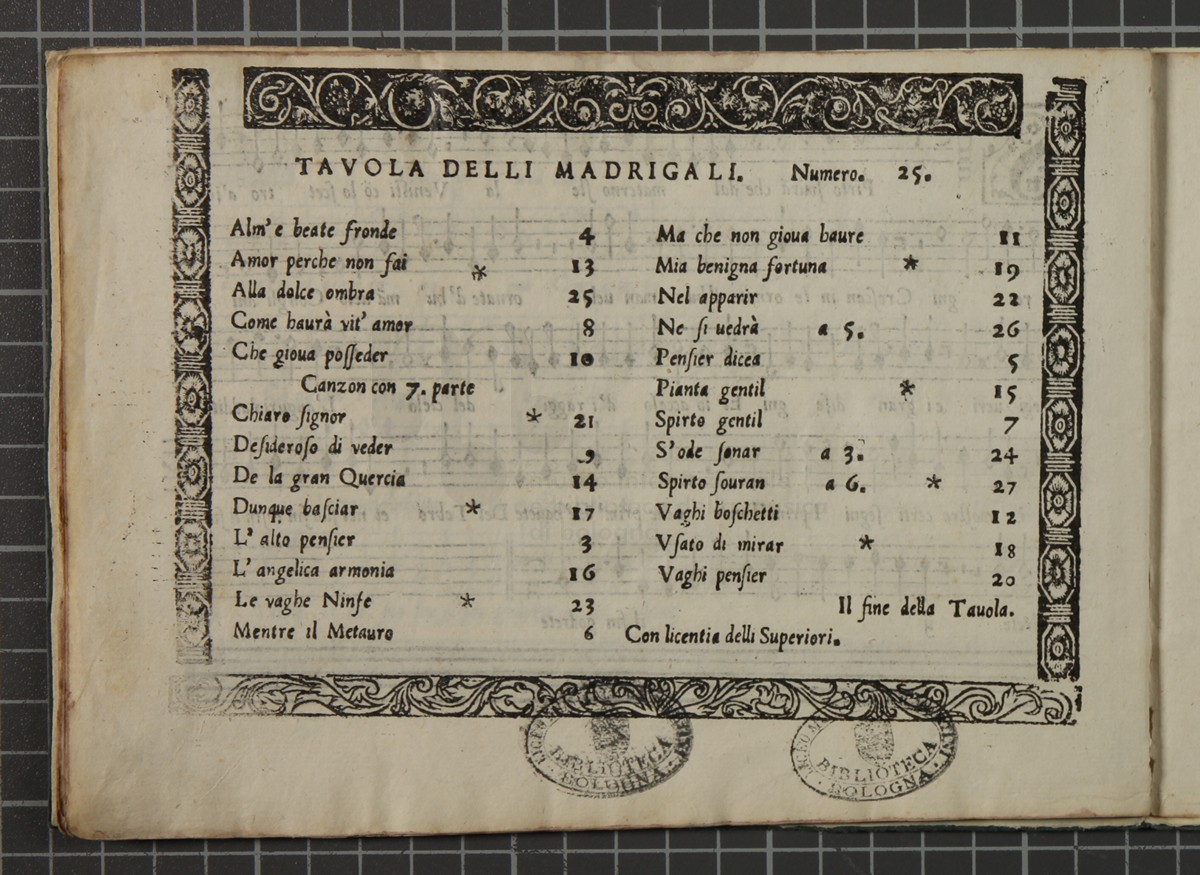 TAVOLA DELLI MADRIGALI. Numero. 25.
Alm' e beate fronde 4
Amor perche non fai * 13
Alla dolce ombra 25
Come haurà vit' amor 8
Che gioua posseder 10
Canzon con 7. parte
Chiaro signor * 21
Desideroso di veder 9
De la gran Quercia 14
Dunque basciar * 17
L' alto pensier 3
L' angelica armonia 16
Le vaghe Ninfe * 23
Mentre il Metauro 6
Ma che non gioua haure 11
Mia benigna fortuna * 19
Nel apparir 22
Ne si uedrà a 5. 26
Pensier dicea 5
Pianta gentil * 15
Spirto gentil 7
S' ode sonar a 3. 24
Spirto souran a 6. * 27
Vaghi boschetti 12
Vsato di mirar * 18
Vaghi pensier 20
Il fine della Tauola.
Con licentia delli Superiori.
BIBLIOTECA
BOLOGNA
BIBLIOTECA
BOLOGNA